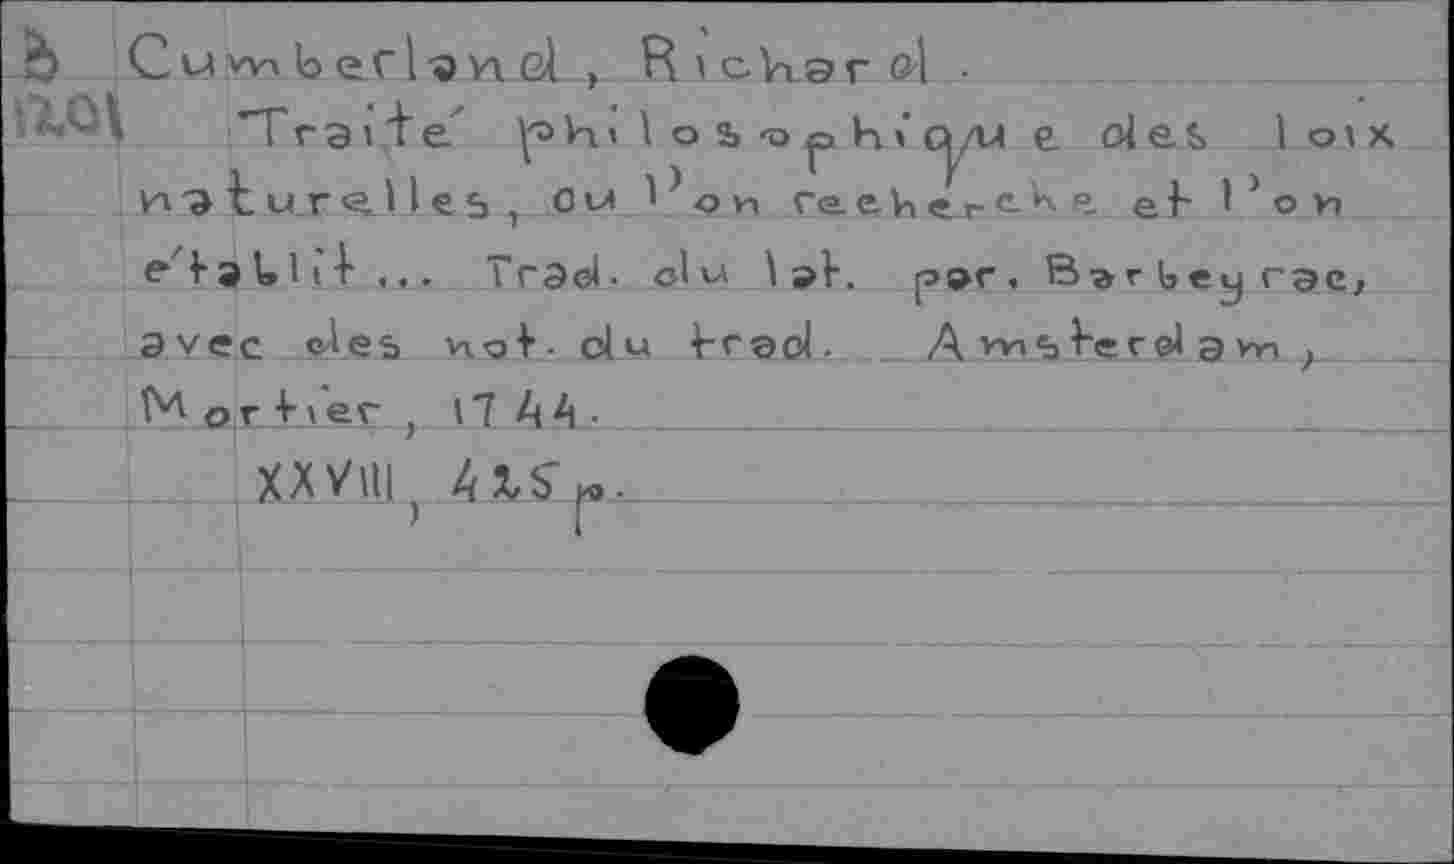 B Cumberland, Richard.
1201 Traité philosophique des loix
naturelles, ou l'on recherche et l'on
établit... Trad. du lat. par. Barbeyrac,
avec des not. du trad. Amsterdam,
Mortier, 1744.
XXVIII, 425 p.